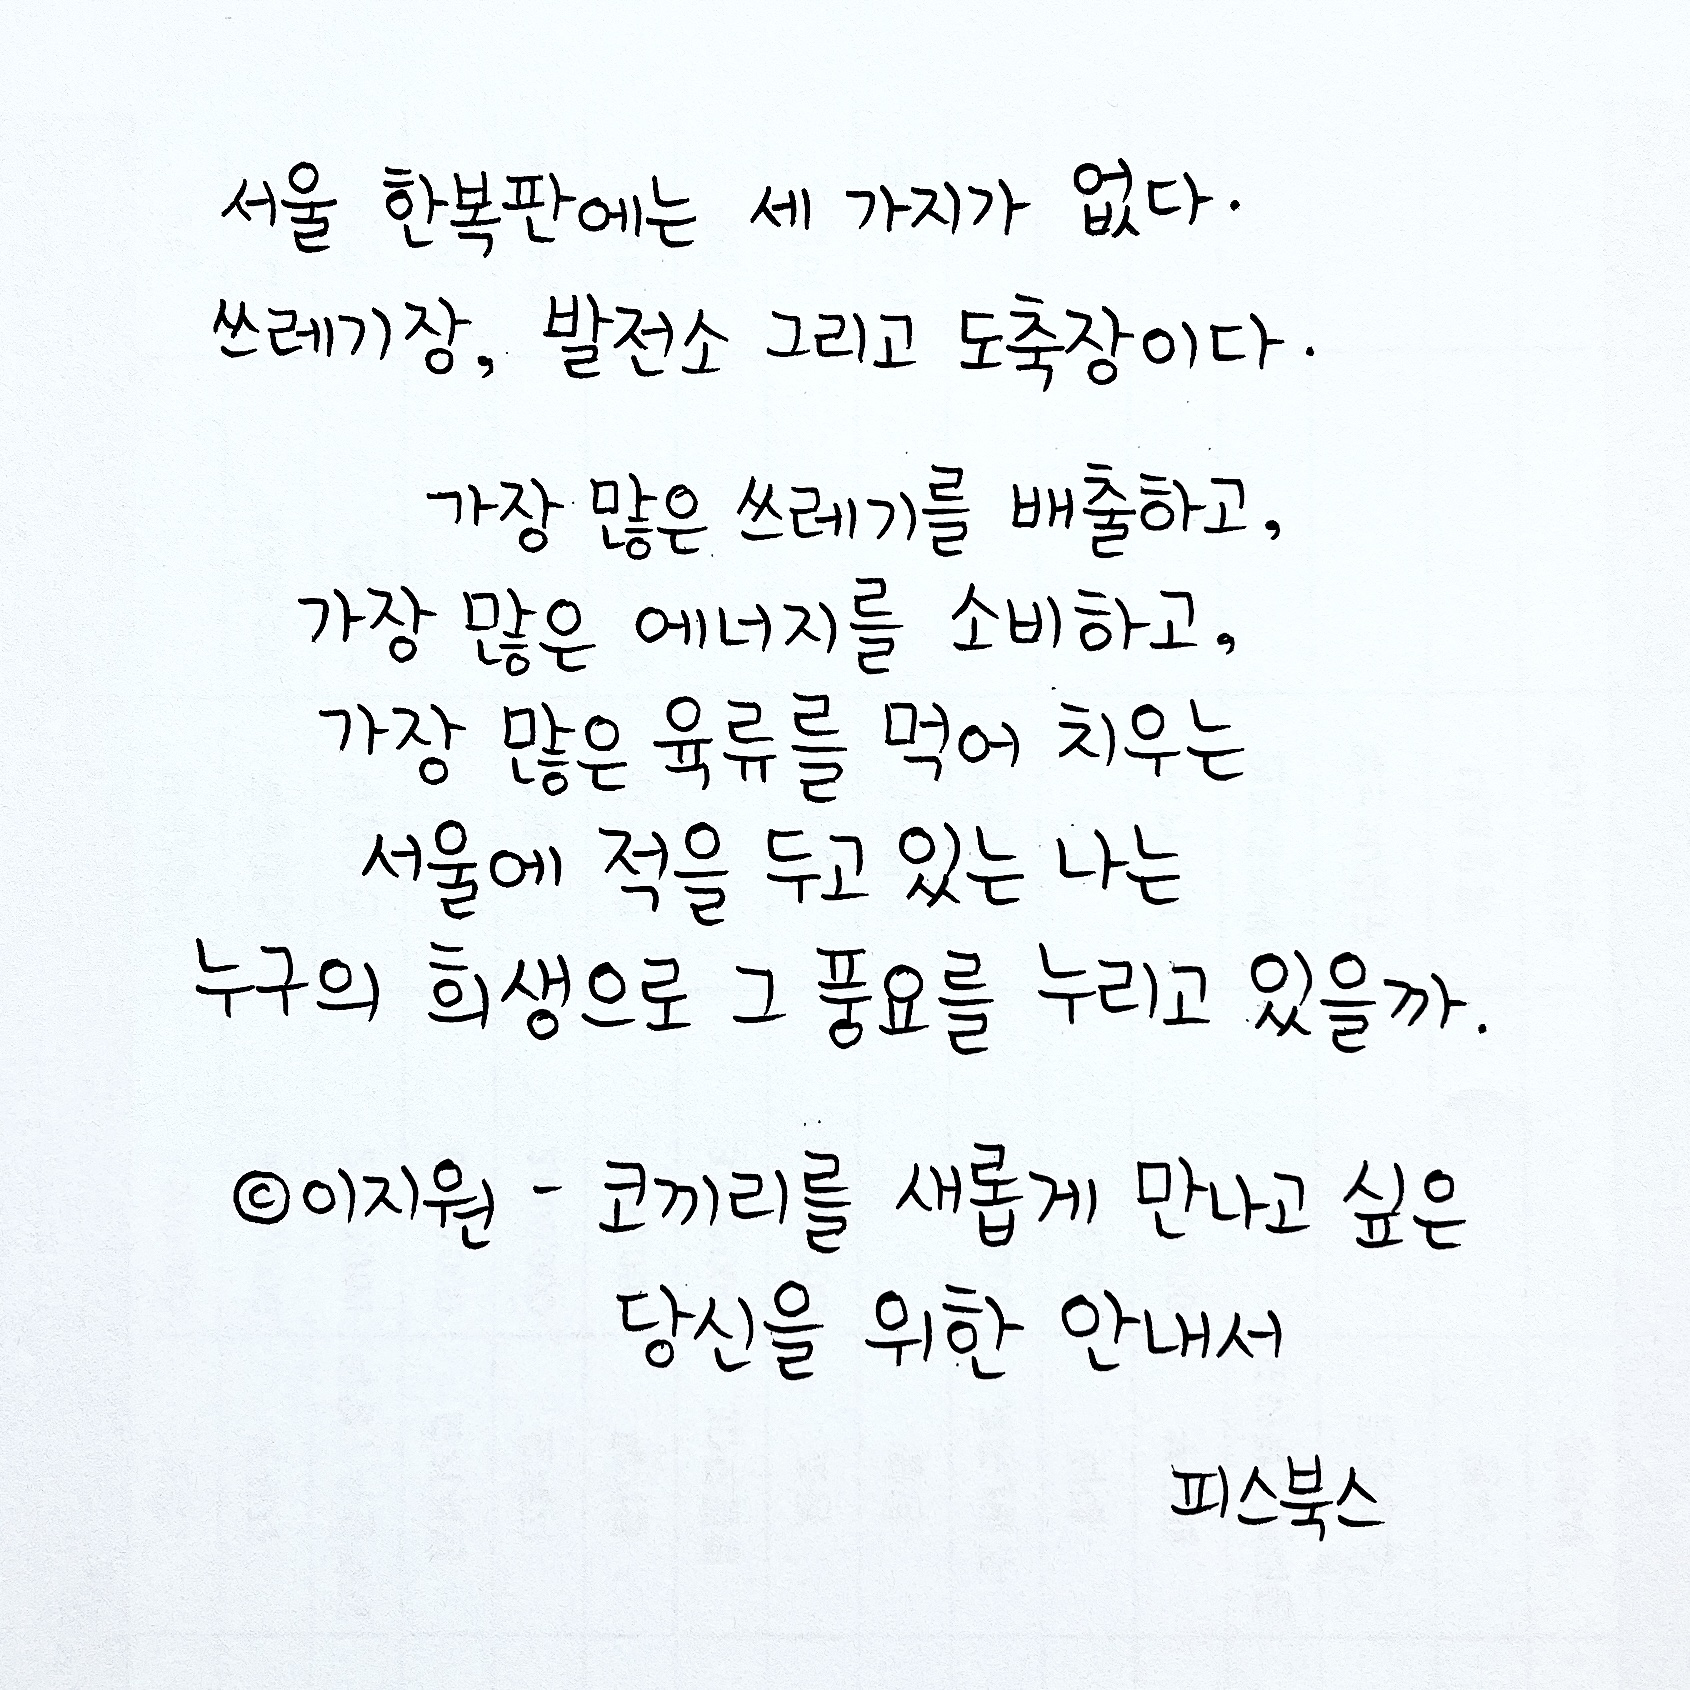 서울 한복판에는 세 가지가 없다.
쓰레기장, 발전소 그리고 도축장이다.
가장 많은 쓰레기를 배출하고,
가장 많은 에너지를 소비하고,
가장 많은 육류를 먹어 치우는
서울에 적을 두고 있는 나는
누구의 희생으로 그 풍요를 누리고 있을까.
©이지원 - 코끼리를 새롭게 만나고 싶은
당신을 위한 안내서
피스북스